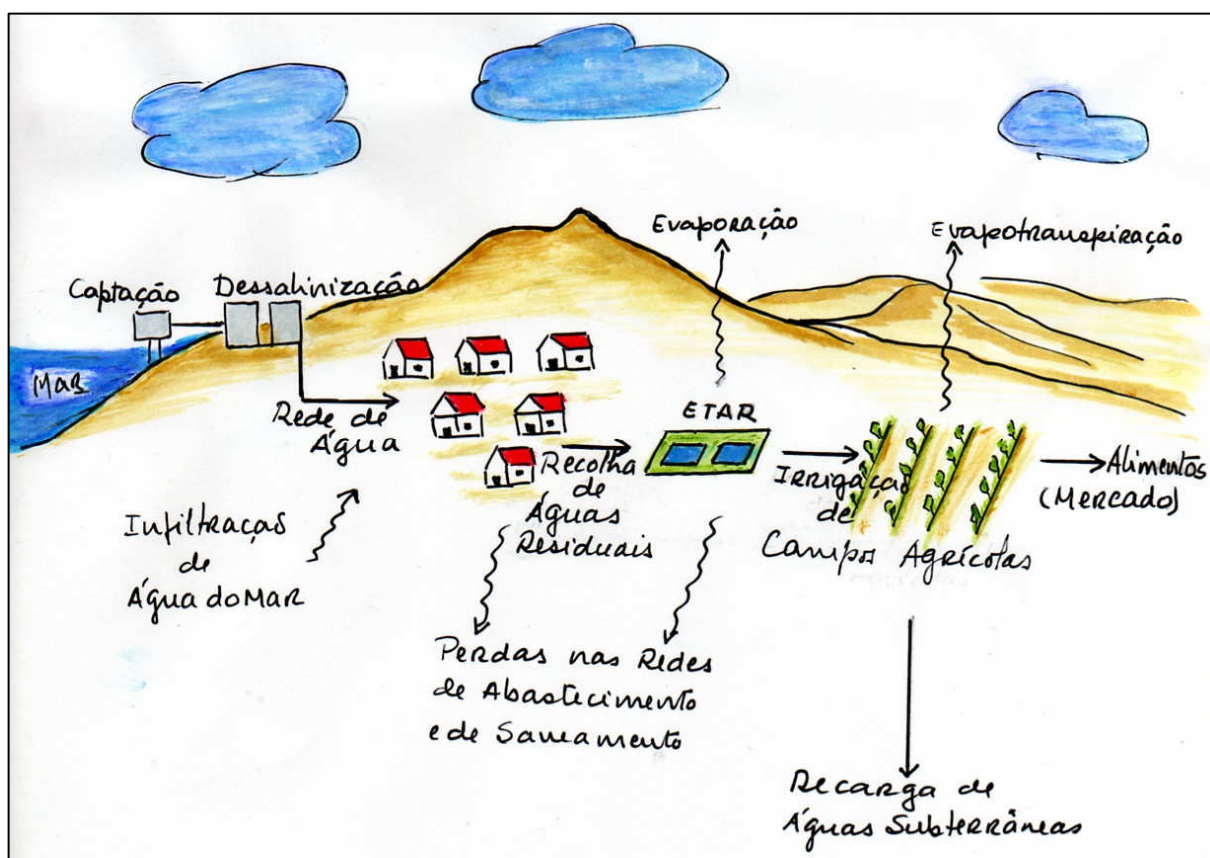 Evaporação
Evapotranspiração
Captação
Dessalinização
MAR
Rede de
Água
ETAR
Recolha
de
Águas
Residuais
Irrigação
de
Campos Agrícolas
Alimentos
(Mercado)
Infiltração
de
Água do MAR
Perdas nas Redes
de Abastecimento
e de Saneamento
Recarga de
Águas Subterrâneas